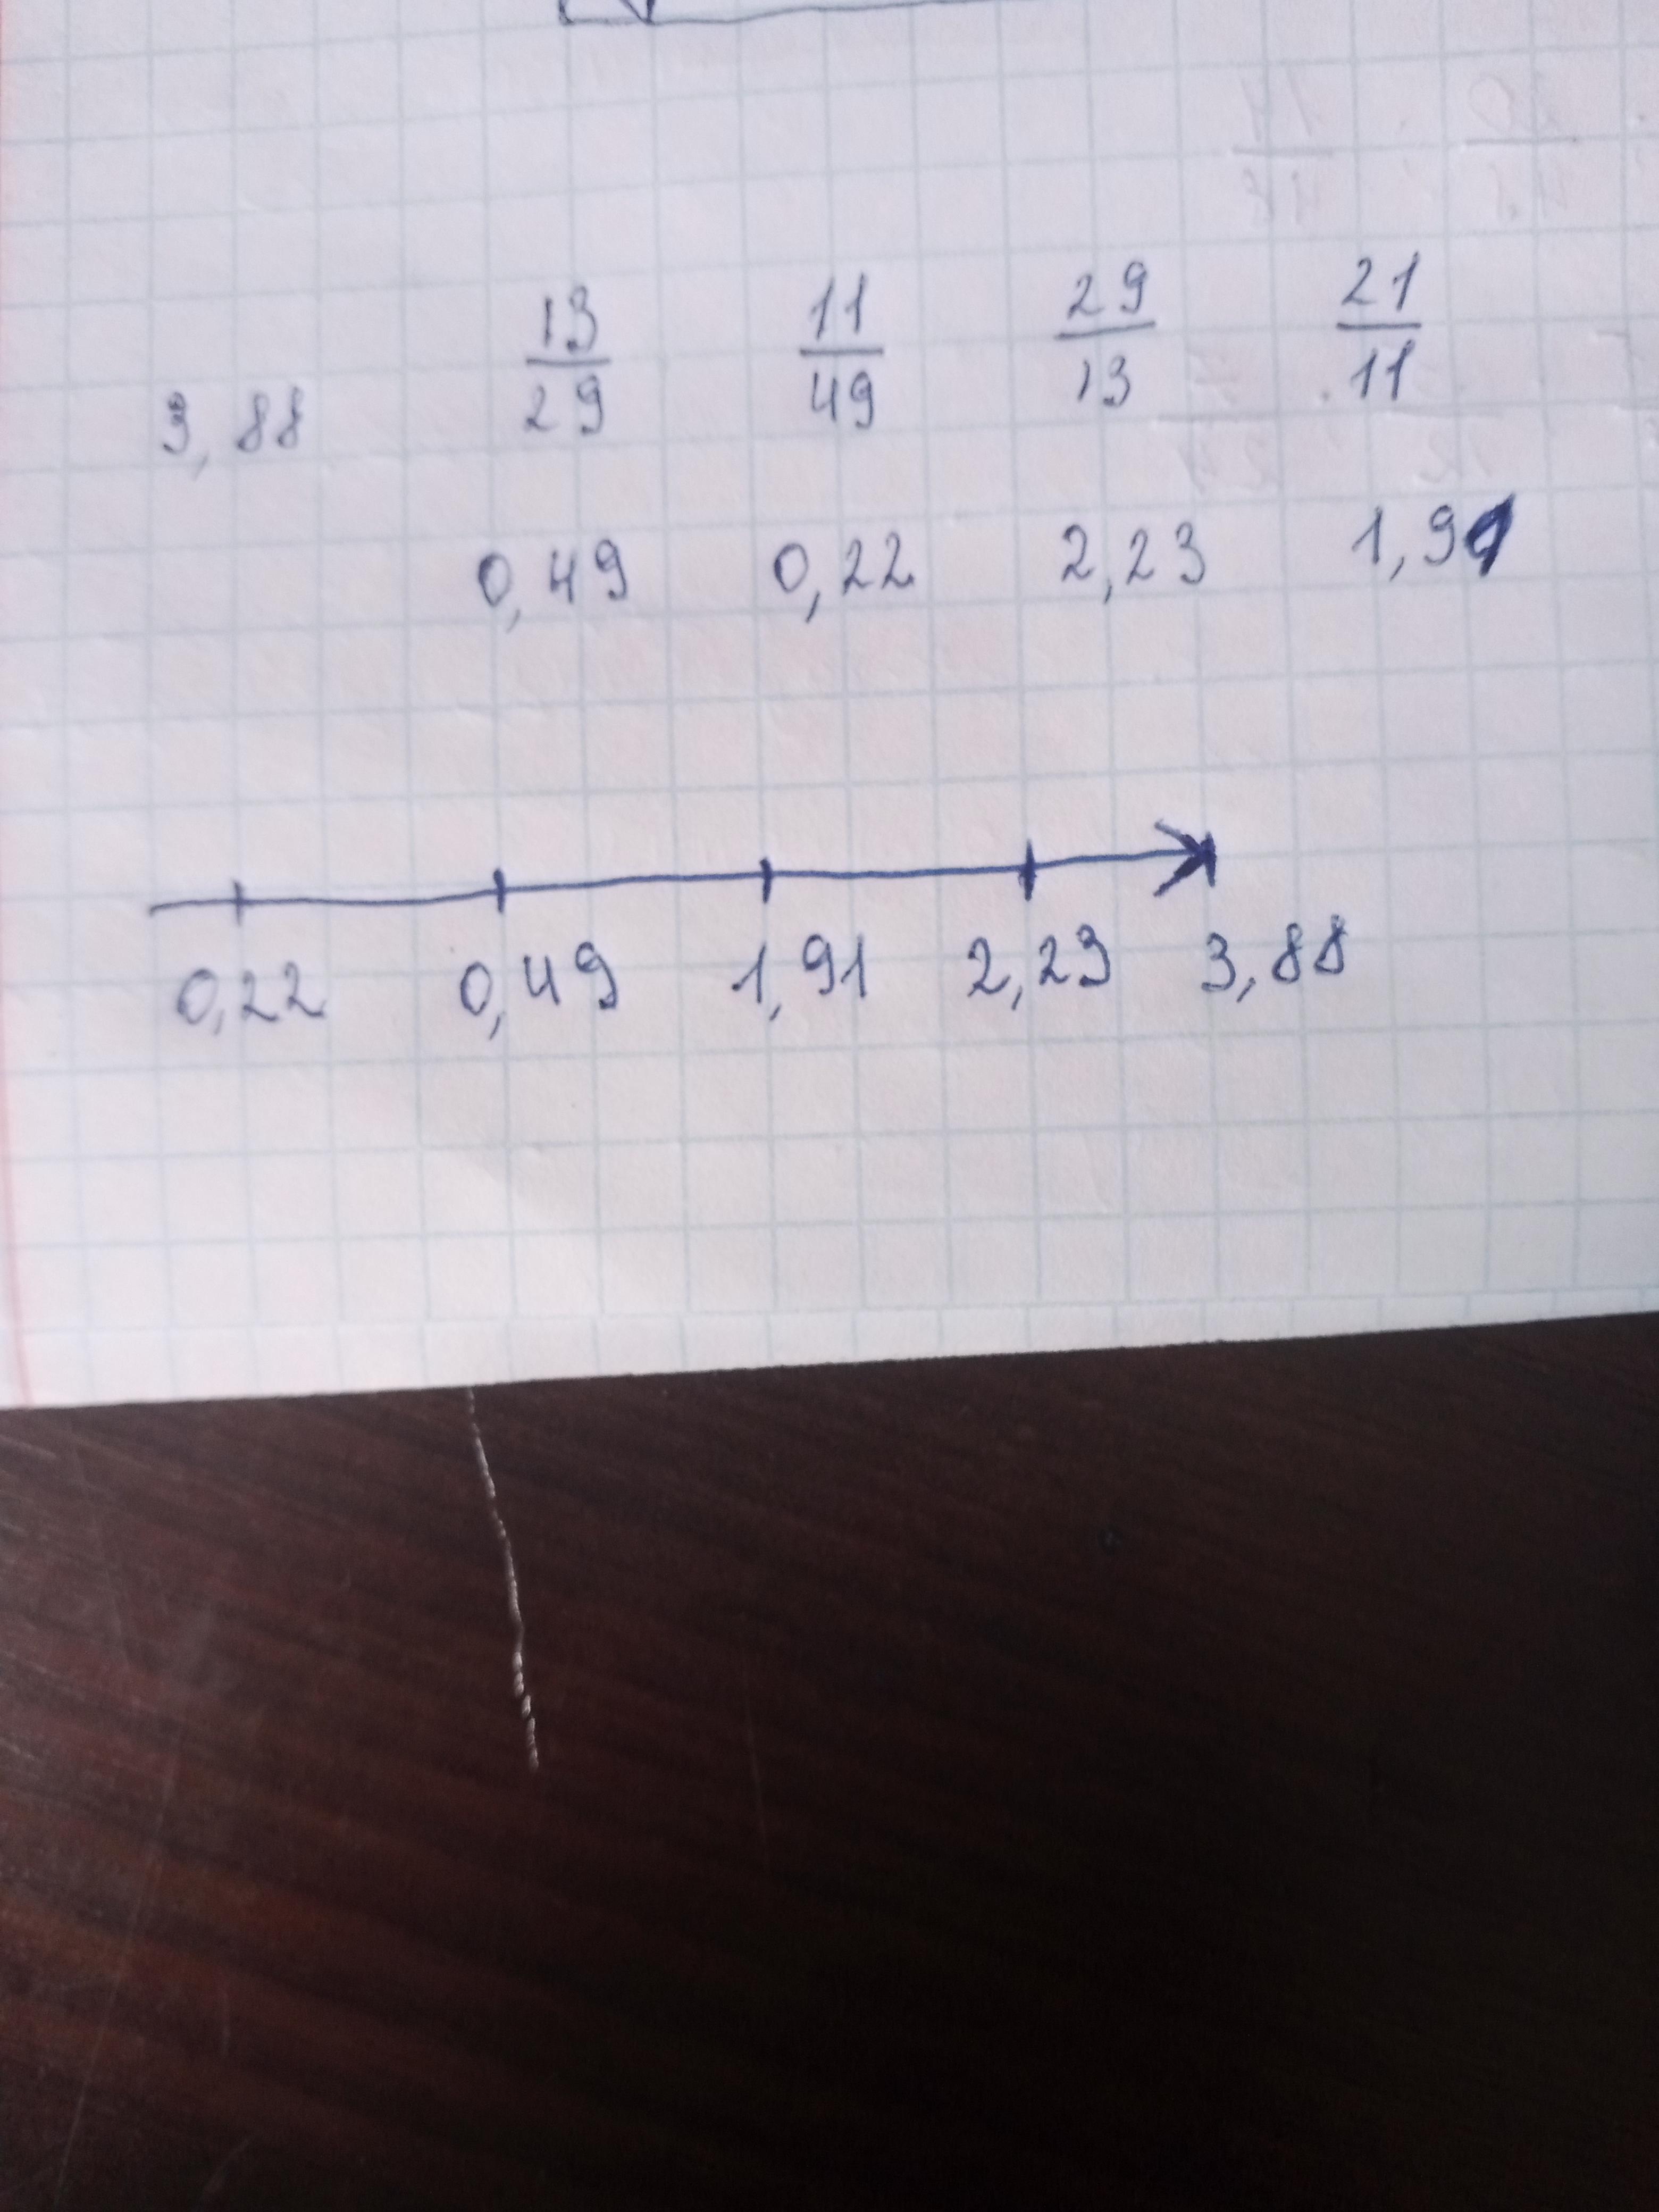 3,88 13/29 11/49 29/13 21/11
0,49 0,22 2,23 1,91
0,22 0,49 1,91 2,23 3,88